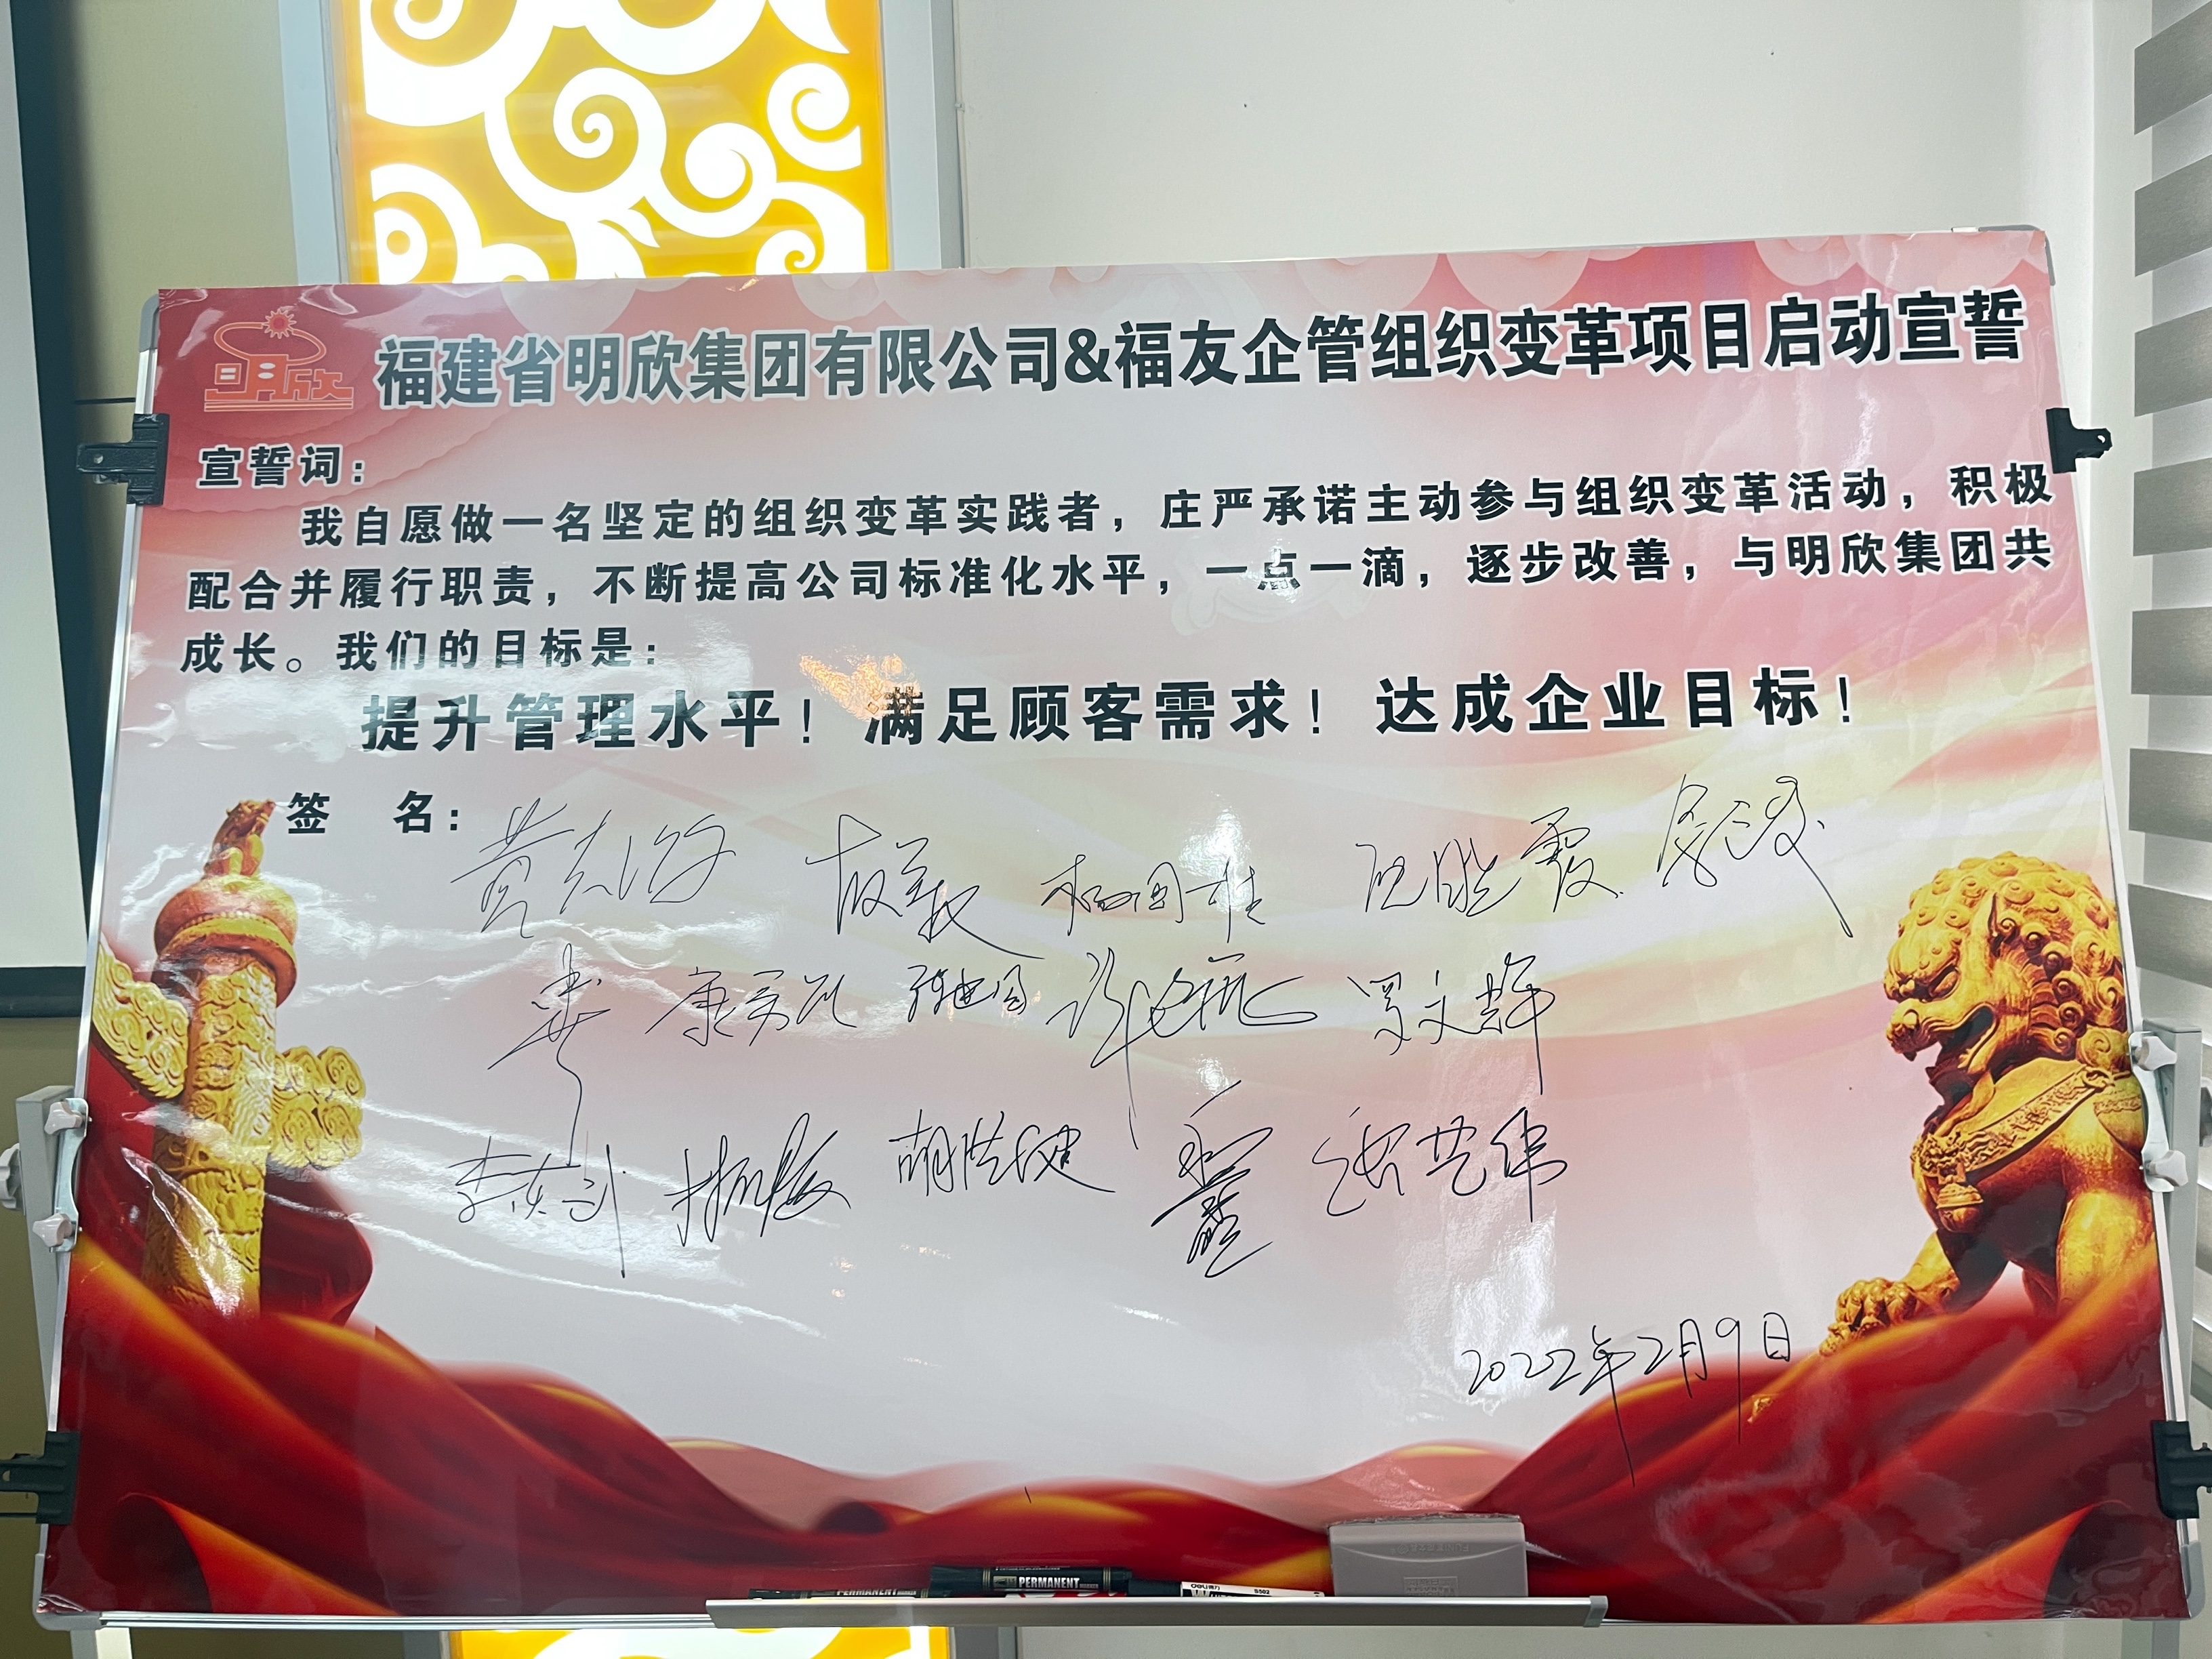 明欣
福建省明欣集团有限公司&福友企管组织变革项目启动宣誓
宣誓词：
我自愿做一名坚定的组织变革实践者，庄严承诺主动参与组织变革活动，积极
配合并履行职责，不断提高公司标准化水平，一点一滴，逐步改善，与明欣集团共
成长。我们的目标是：
提升管理水平！满足顾客需求！达成企业目标！
签 名：
康景凯 罗文辉
胡洪健
2022年2月9日
PERMANENT PERMANENT